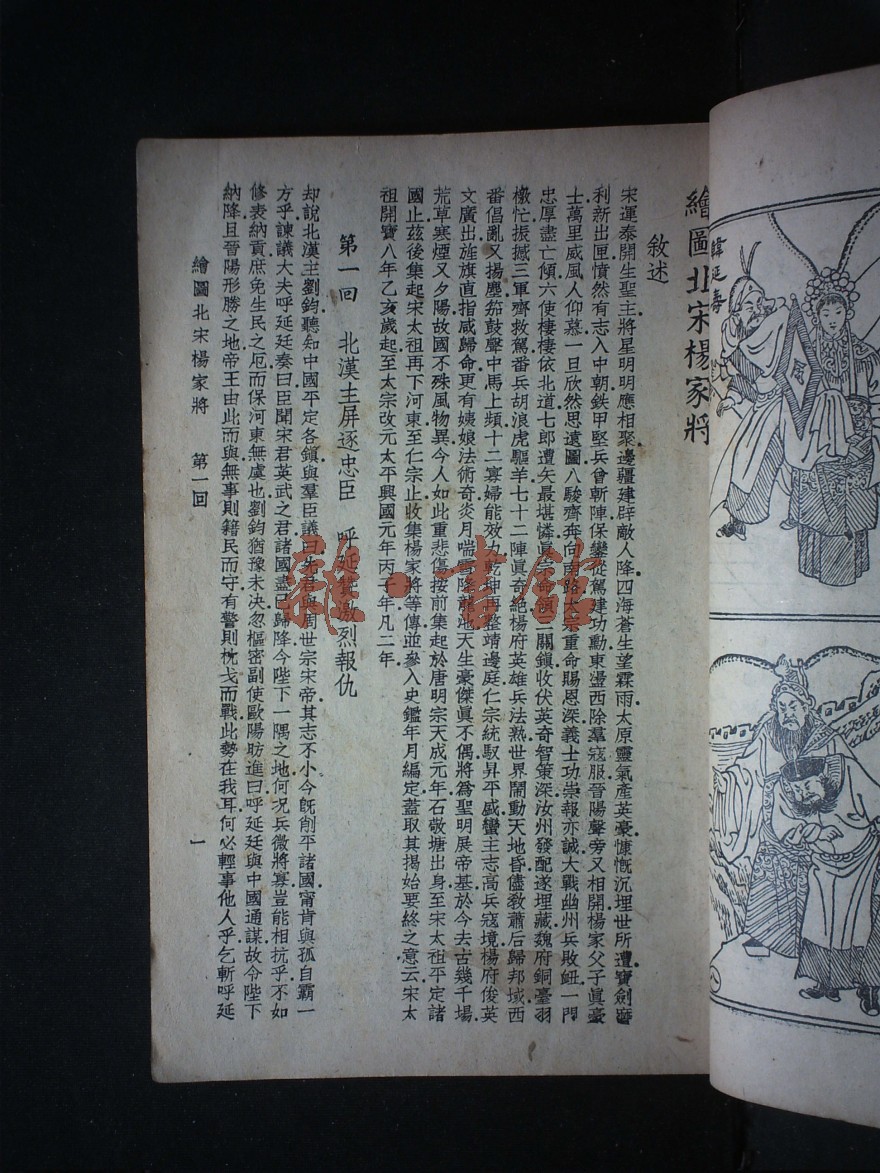 繪圖北宋楊家將
敘述
宋運泰開生聖主將星明明應相聚邊疆建辟敵人降四海蒼生望霖雨太原靈氣產英豪慷慨沉埋世所遭寶劍磨
利新出匣憤然有志入中朝鉄甲堅兵曾斬陣保鑾從駕建功勳東盪西除羣寇服晉陽聲旁又相開楊家父子眞豪
士萬里威風人仰慕一旦欣然思遠圖八駿齊奔向南路太宗重命賜恩深義士功崇報亦誠大戰幽州兵敗衄一門
忠厚盡亡傾六使棲棲依北道七郎遭矢最堪憐眞宗命領三關鎭收伏英奇智策深汝州發配遂埋藏魏府銅臺羽
檄忙振撼三軍齊救駕番兵胡浪虎驅羊七十二陣眞奇絕楊府英雄兵法熟世界鬧動天地昏儘敎蕭后歸邦域西
番倡亂又揚塵笳鼓聲中馬上頻十二寡婦能效力乾坤再整靖邊庭仁宗統馭昇平盛蠻主志高兵寇境楊府俊英
文廣出旌旗直指咸歸命更有姨娘法術奇炎月喘雪降龍地天生豪傑眞不偶將爲聖明展帝基於今去古幾千場
荒草寒煙又夕陽故國不殊風物異今人如此重悲傷按前集起於唐明宗天成元年石敬塘出身至宋太祖平定諸
國止茲後集起宋太祖再下河東至仁宗止收集楊家將等傳並參入史鑑年月編定蓋取其揭始要終之意云宋太
祖開寶八年乙亥歲起至太宗改元太平興國元年丙子年凡二年
第一回　北漢主屏逐忠臣　呼延贊激烈報仇
却說北漢主劉鈞聽知中國平定各鎭與羣臣議曰先君與周世宗宋帝其志不小今旣削平諸國甯肯與孤自霸一
方乎諫議大夫呼延廷奏曰臣聞宋君英武之君諸國盡已歸降今陛下一隅之地何况兵微將寡豈能相抗乎不如
修表納貢庶免生民之厄而保河東無虞也劉鈞猶豫未決忽樞密副使歐陽昉進曰呼延廷與中國通謀故令陛下
納降且晉陽形勝之地帝王由此而與無事則籍民而守有警則枕戈而戰此勢在我耳何必輕事他人乎乞斬呼延
繪圖北宋楊家將　第一回　一
韓延壽
雜·書館